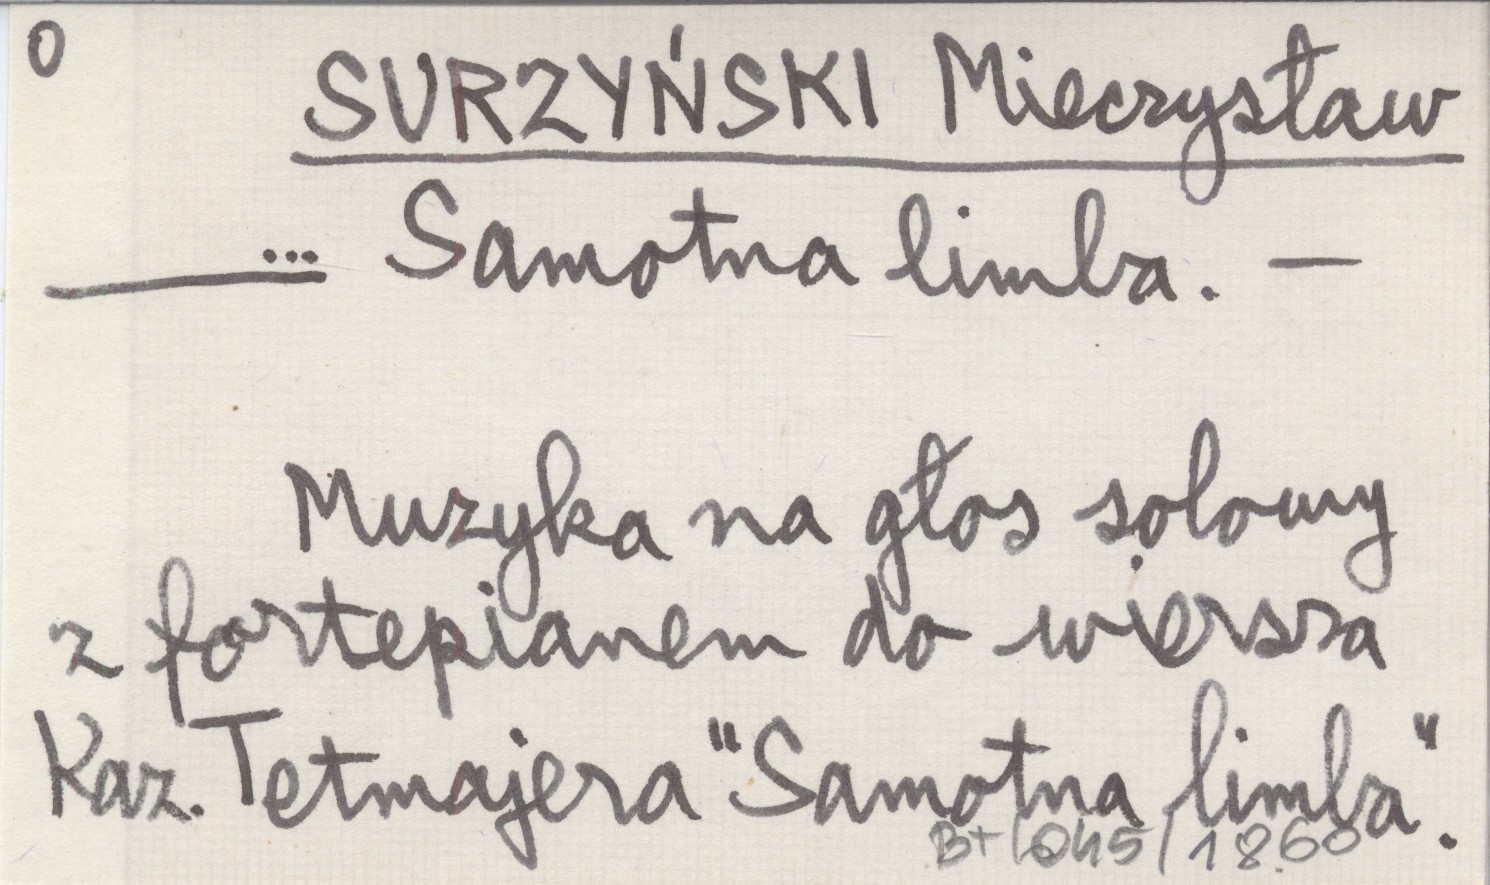 0
SURZYŃSKI Mieczysław
... Samotna limba. —
Muzyka na głos solowy
z fortepianem do wiersza
Kaz. Tetmajera "Samotna limba".
1860